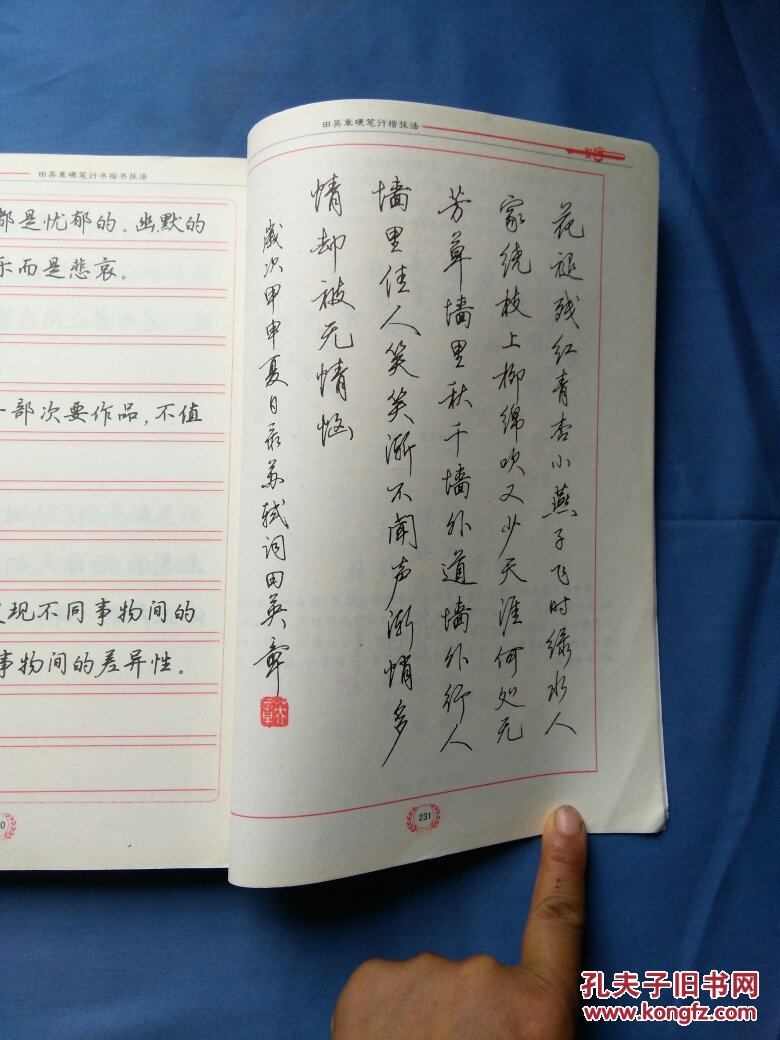 田英章硬笔行书楷书技法
都是忧郁的。幽默的
乐而是悲哀。
部次要作品，不值
现不同事物间的
事物间的差异性。
0
田英章硬笔行楷技法
花褪残红青杏小燕子飞时绿水人
家绕枝上柳绵吹又少天涯何处无
芳草墙里秋千墙外道墙外行人
墙里佳人笑笑渐不闻声渐悄多
情却被无情恼
岁次甲申夏日录苏轼词田英章
231
孔夫子旧书网
www.kongfz.com